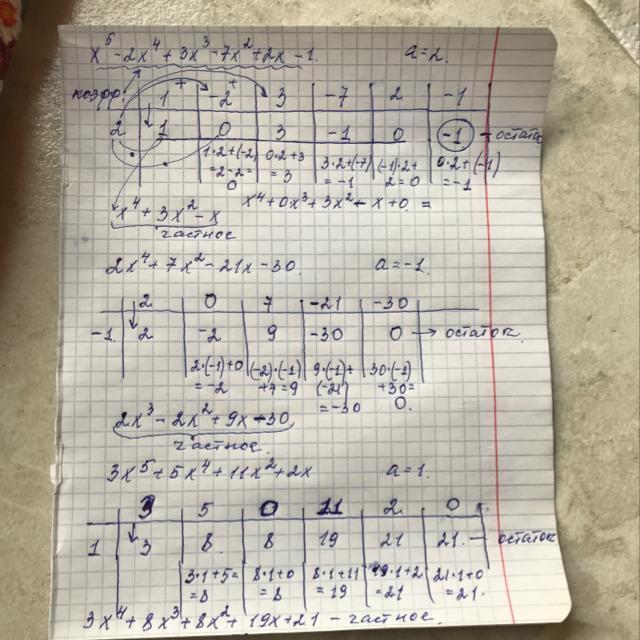 x⁵-2x⁴+3x³-7x²+2x-1. a=2.
коэфф. 1 -2 3 -7 2 -1
2 1 0 3 -1 0 -1 - остаток
1·2+(-2) 0·2+3 3·2+(-7) (-1)·2+ 0·2+(-1)
=2-2= =3 =-1 2=0 =-1
0
x⁴+3x²-x x⁴+0x³+3x²-x+0 =
частное
2x⁴+7x²-21x-30. a=-1.
2 0 7 -21 -30
-1 2 -2 9 -30 0 → остаток
2·(-1)+0 (-2)·(-1) 9·(-1)+ 30·(-1)
=-2 +7=9 (-21) +30=
=-30 0.
2x³-2x²+9x-30
частное.
3x⁵+5x⁴+11x²+2x a=1.
3 5 0 11 2 0
1 3 8 8 19 21 21 - остаток
3·1+5= 8·1+0 8·1+11 19·1+2 21·1+0
=8 =8 =19 =21 =21.
3x⁴+8x³+8x²+19x+21 - частное.